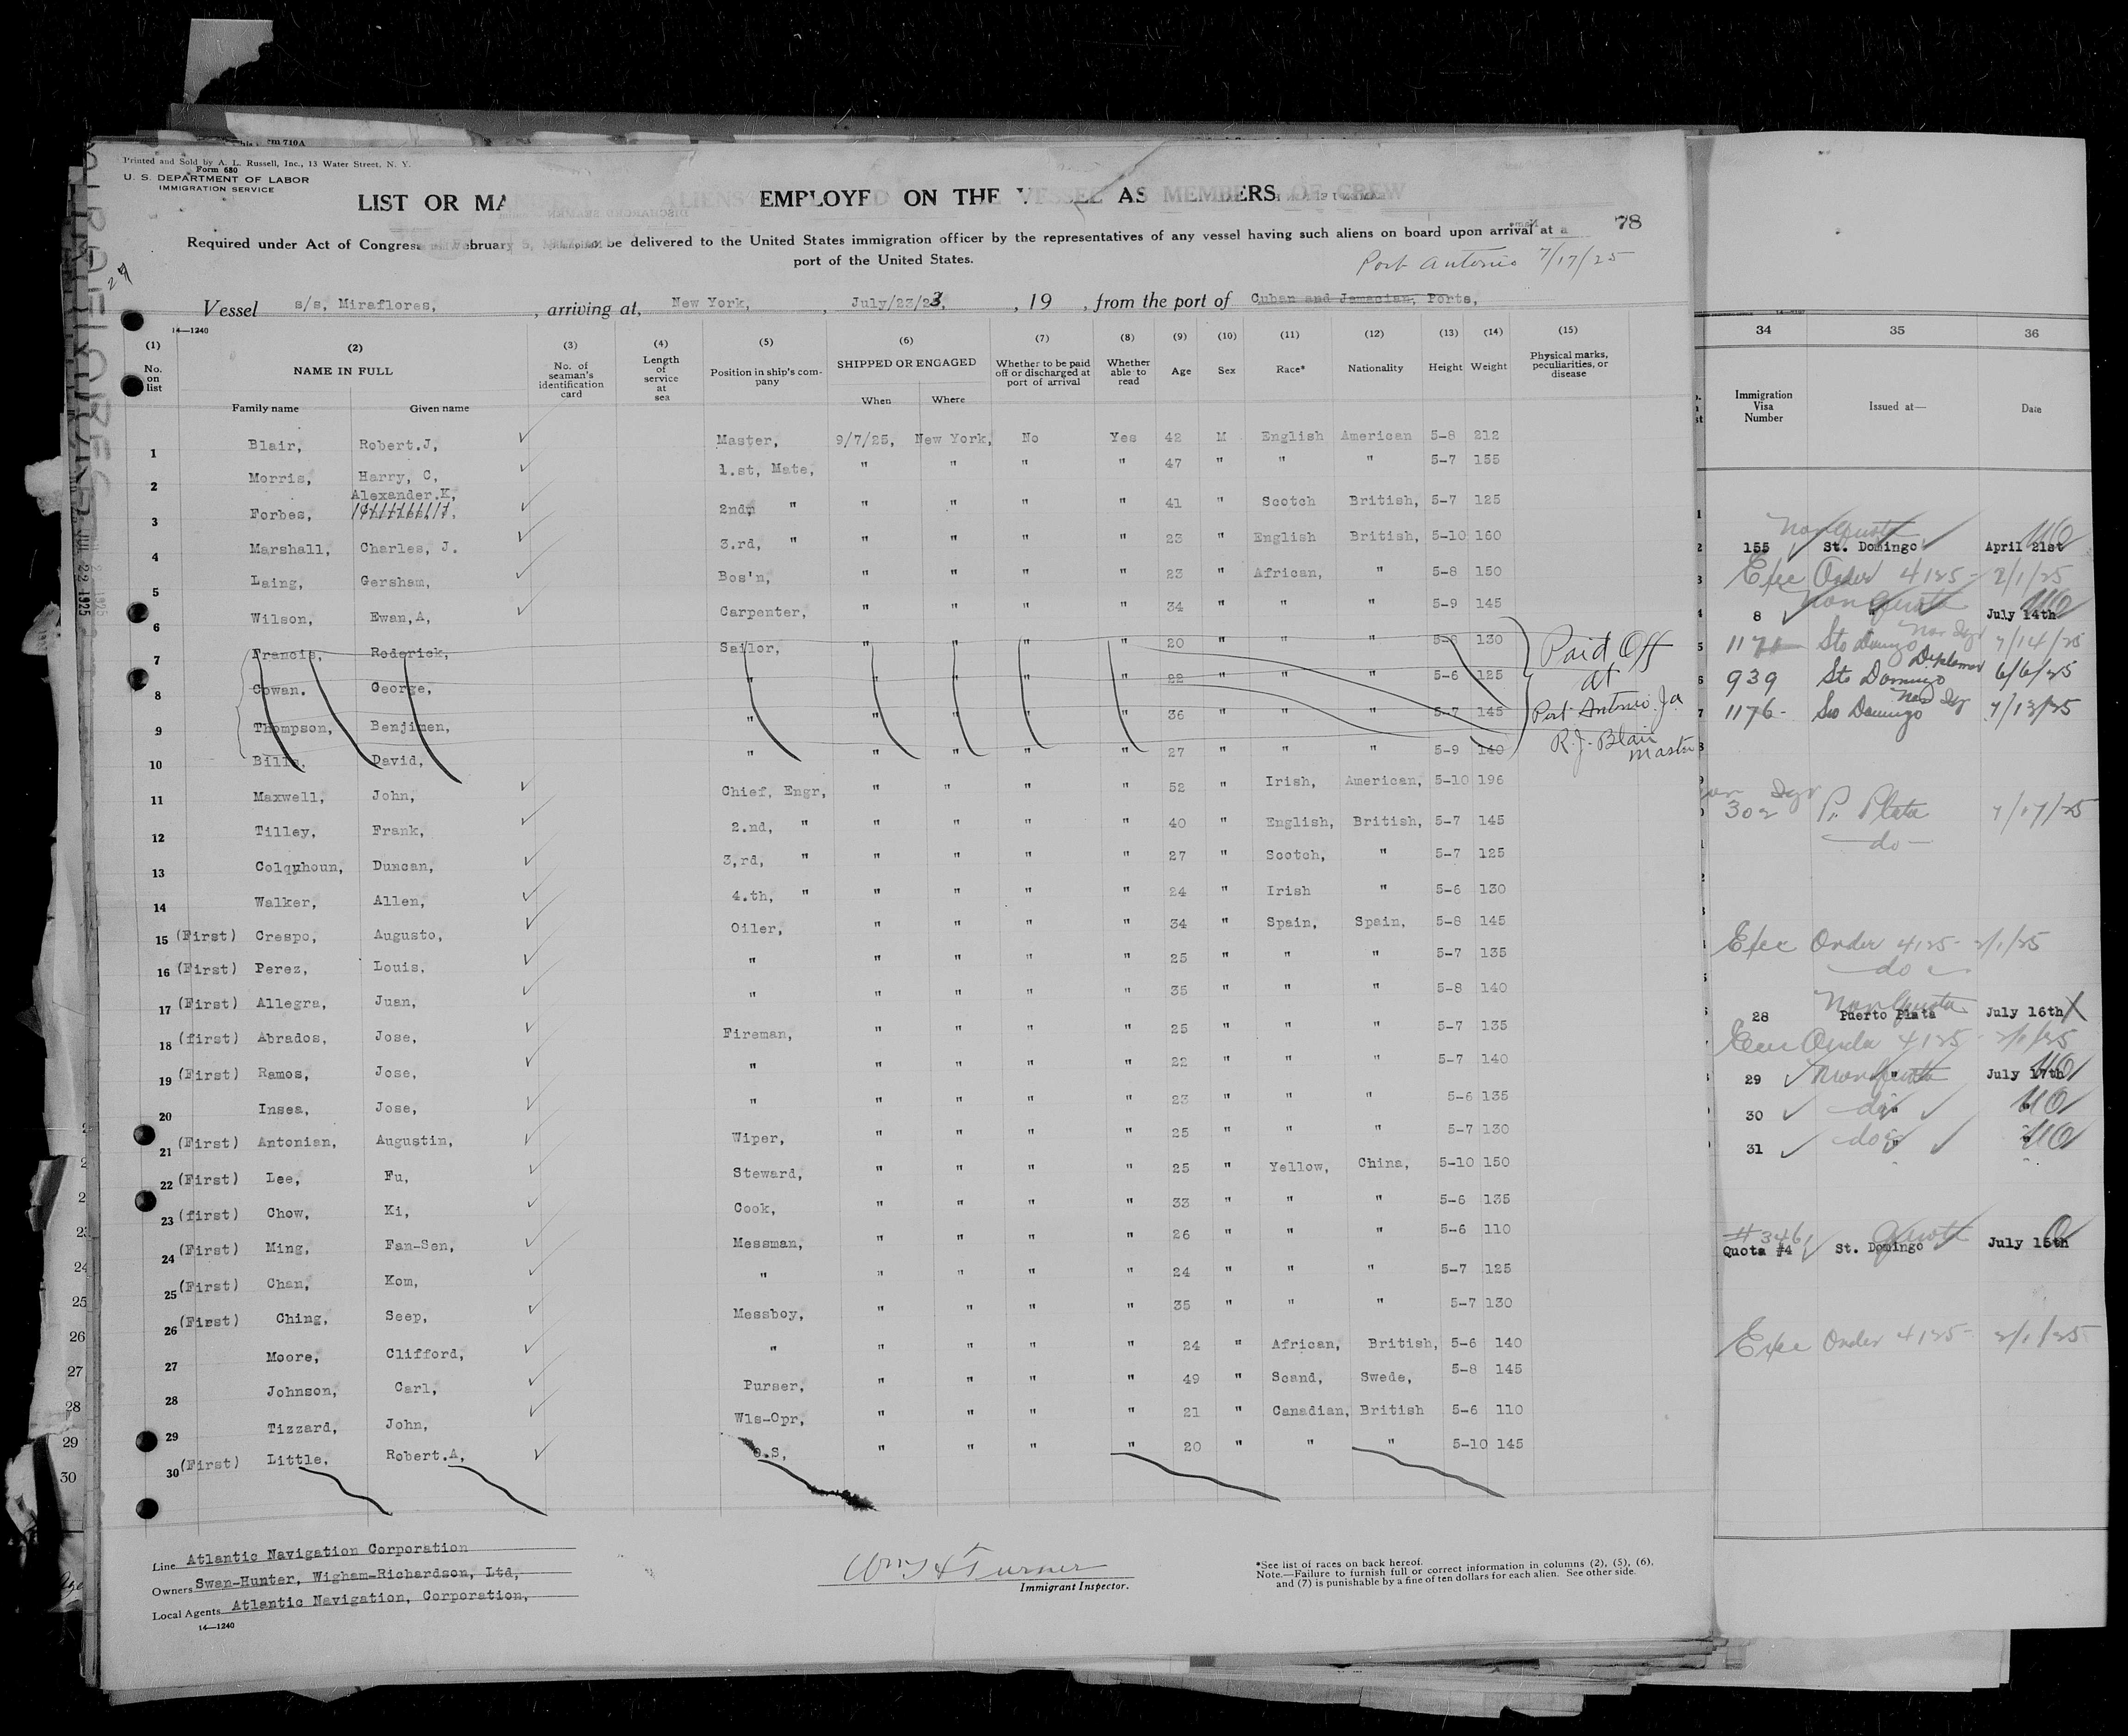 rm 710A
Printed and Sold by A. L. Russell, Inc., 13 Water Street, N. Y.
Form 680
U. S. DEPARTMENT OF LABOR
IMMIGRATION SERVICE
LIST OR MANIFEST ALIENS EMPLOYED ON THE VESSEL AS MEMBERS OF CREW
78
Required under Act of Congress February 5, be delivered to the United States immigration officer by the representatives of any vessel having such aliens on board upon arrival at a
port of the United States.
Port Antonio 7/17/25
Vessel s/s, Miraflores, , arriving at, New York, , July/23/23, , 19 , from the port of Cuban and Jamacian, Ports,
14—1240
(1) No. on list (2) NAME IN FULL Family name Given name (3) No. of seaman's identification card (4) Length of service at sea (5) Position in ship's company (6) SHIPPED OR ENGAGED When Where (7) Whether to be paid off or discharged at port of arrival (8) Whether able to read (9) Age (10) Sex (11) Race* (12) Nationality (13) Height (14) Weight (15) Physical marks, peculiarities, or disease
1 Blair, Robert.J, Master, 9/7/25, New York, No Yes 42 M English American 5-8 212
2 Morris, Harry, C, 1.st, Mate, " " " " 47 " " " 5-7 155
Alexander.K,
3 Forbes, 2nd, " " " " " 41 " Scotch British, 5-7 125
4 Marshall, Charles, J. 3.rd, " " " " " 23 " English British, 5-10 160
5 Laing, Gersham, Bos'n, " " " " 23 " African, " 5-8 150
6 Wilson, Ewan,A, Carpenter, " " " " 34 " " " 5-9 145
7 Francis, Roderick, Sailor, " " " " 20 " " " 5-8 130
8 Cowan. George, " " " " " 22 " " " 5-6 125
9 Thompson, Benjimen, " " " " " 36 " " " 5-7 145
10 Bills, David, " " " " " 27 " " " 5-9 140
Paid Off
at
Port Antonio Ja
R.J. Blair
Master
11 Maxwell, John, Chief, Engr, " " " " 52 " Irish, American, 5-10 196
12 Tilley, Frank, 2.nd, " " " " " 40 " English, British, 5-7 145
13 Colquhoun, Duncan, 3,rd, " " " " " 27 " Scotch, " 5-7 125
14 Walker, Allen, 4.th, " " " " " 24 " Irish " 5-6 130
15 (First) Crespo, Augusto, Oiler, " " " " 34 " Spain, Spain, 5-8 145
16 (First) Perez, Louis, " " " " " 25 " " " 5-7 135
17 (First) Allegra, Juan, " " " " " 35 " " " 5-8 140
18 (first) Abrados, Jose, Fireman, " " " " 25 " " " 5-7 135
19 (First) Ramos, Jose, " " " " " 22 " " " 5-7 140
20 Insea, Jose, " " " " " 23 " " " 5-6 135
21 (First) Antonian, Augustin, Wiper, " " " " 25 " " " 5-7 130
22 (First) Lee, Fu, Steward, " " " " 25 " Yellow, China, 5-10 150
23 (first) Chow, Ki, Cook, " " " " 33 " " " 5-6 135
24 (First) Ming, Fan-Sen, Messman, " " " " 26 " " " 5-6 110
25 (First) Chan, Kom, " " " " " 24 " " " 5-7 125
26 (First) Ching, Seep, Messboy, " " " " 35 " " " 5-7 130
27 Moore, Clifford, " " " " " 24 " African, British, 5-6 140
28 Johnson, Carl, Purser, " " " " 49 " Scand, Swede, 5-8 145
29 Tizzard, John, Wls-Opr, " " " " 21 " Canadian, British 5-6 110
30 (First) Little, Robert.A, O.S, " " " " 20 " " " 5-10 145
Line Atlantic Navigation Corporation
Owners Swan-Hunter, Wigham-Richardson, Ltd,
Local Agents Atlantic Navigation, Corporation,
14—1240
Wm H Turner
Immigrant Inspector.
*See list of races on back hereof.
Note.—Failure to furnish full or correct information in columns (2), (5), (6),
and (7) is punishable by a fine of ten dollars for each alien. See other side.
34 35 36
Immigration Visa Number Issued at— Date
Non Quota
155 St. Domingo April 21st
Exec Order 4125 - 2/1/25
Non Quota
8 " July 14th
1171 Sto Domingo 7/14/25
939 Sto Domingo Diplomat 6/6/25
1176 - Sto Domingo 7/13/25
302 P. Plata 7/17/25
do
Exec Order 4125 - 2/1/25
do
Non Quota
28 Puerto Plata July 16th
Exec Order 4125 - 2/1/25
29 Non Quota July 17th
30 do
31 do
#346 Quota
Quota #4 St. Domingo July 15th
Exec Order 4125 - 2/1/25
JUL 22 1925
23
24
25
26
27
28
29
30